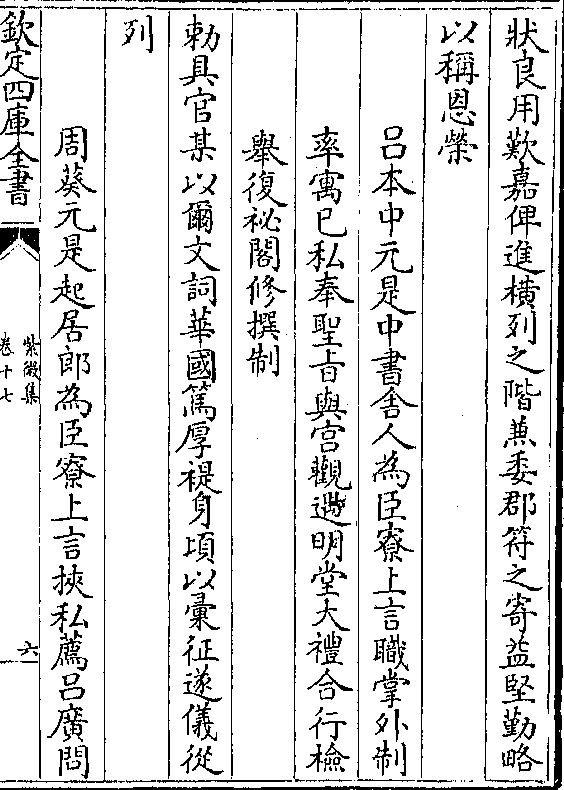 狀良用歎嘉俾進横列之階兼委郡符之寄益堅勤略
以稱恩榮
吕本中元是中書舍人為臣寮上言職掌外制
率寓已私奉聖旨與宫觀遇明堂大禮合行檢
舉復祕閣修撰制
勅具官某以爾文詞華國篤厚禔身頃以彚征遂儀從
列
周葵元是起居郎為臣寮上言挾私薦吕廣問
欽定四庫全書
紫微集
卷十七
六